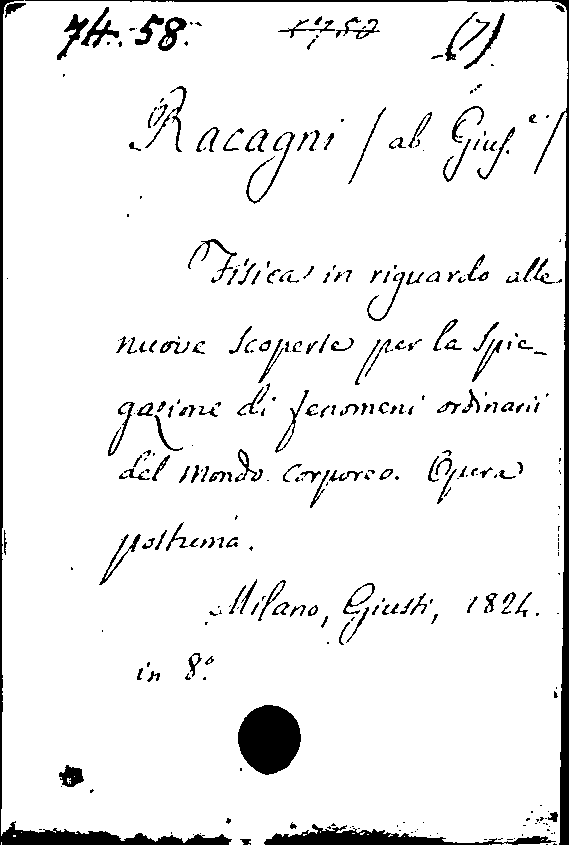 74. 58. (7)
Racagni / ab. Gius.e /
Fisica in riguardo alle
nuove scoperte per la spie-
gazione di fenomeni ordinarii
del mondo corporeo. Opera
postrema.
Milano, Giusti, 1824.
in 8.o